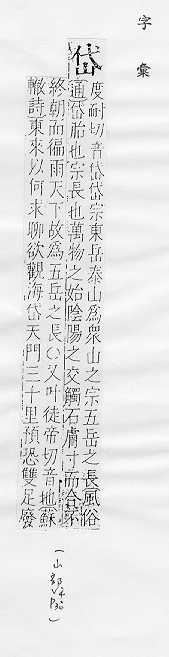 字彙
岱
度耐切音岱岱宗東岳泰山為衆山之宗五岳之長風俗
通岱胎也宗長也萬物之始陰陽之交觸石膚寸而合不
終朝而徧雨天下故為五岳之長〇又叶徒帝切音地蘇
轍詩東來以何求聊欲觀海岱天門三十里預恐雙足廢
(山部)